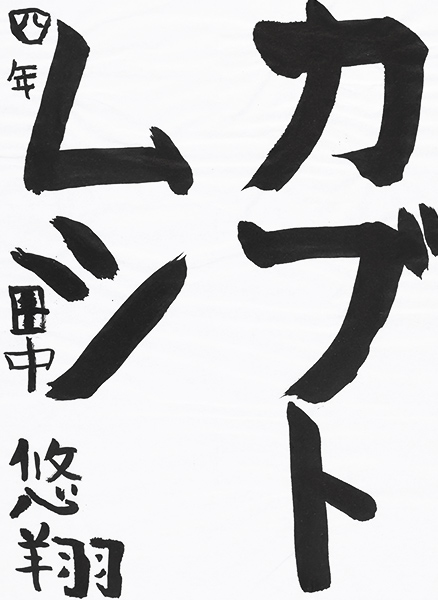 カブト
ムシ
四年 田中悠翔